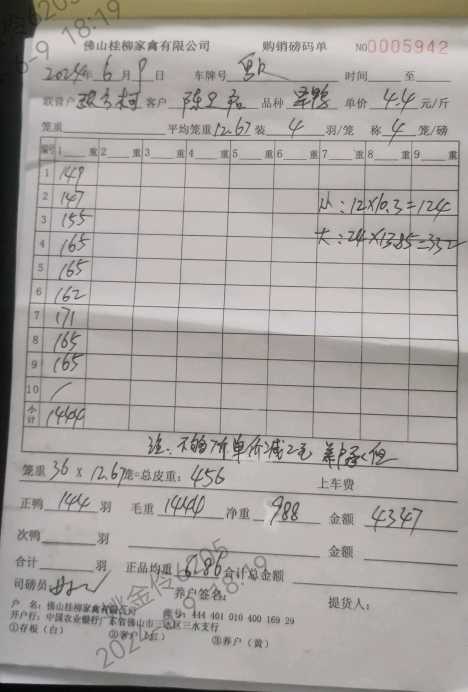 佛山桂柳家禽有限公司 购销磅码单 NO 0005942
2024年6月9日 车牌号 时间 至
联营户 客户 品种 单价 4.4 元/斤
笼重 平均笼重 12.67 装 4 羽/笼 称 4 笼/磅
编号 1 重 2 重 3 重 4 重 5 重 6 重 7 重 8 重 9 重
1 149
2 147 小：12×10.3=124
3 155 大：24×13.85=332
4 165
5 165
6 162
7 171
8 165
9 165
10
小计 1444
注：不够7斤单价减2毛
笼重 36 × 12.67 =总皮重：456 上车费
正鸭 144 羽 毛重 1444 净重 988 金额 4347
次鸭 羽 金额
合计 羽 正品均重 6.86 合计总金额
司磅员 养户签名： 提货人：
户 名：佛山桂柳家禽有限公司 账号：444 401 010 400 169 29
开户行：中国农业银行广东省佛山市三达区三水支行
①存根（白） ②客户（红） ③养户（黄）